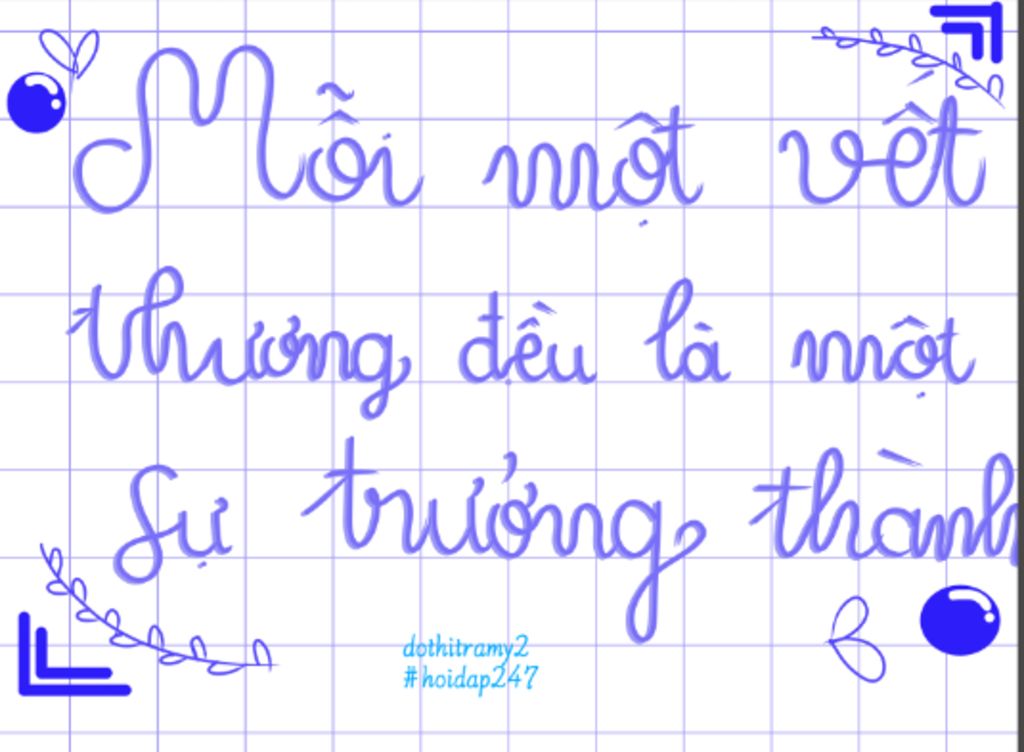 Mỗi một vết
thương đều là một
Sự trưởng thành
dothitramy2
#hoidap247